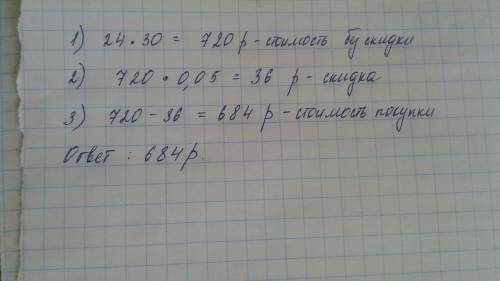 1) 24 • 30 = 720 р - стоимость бу скидки
2) 720 • 0,05 = 36 р - скидка
3) 720 - 36 = 684 р - стоимость покупки
Ответ : 684 р.